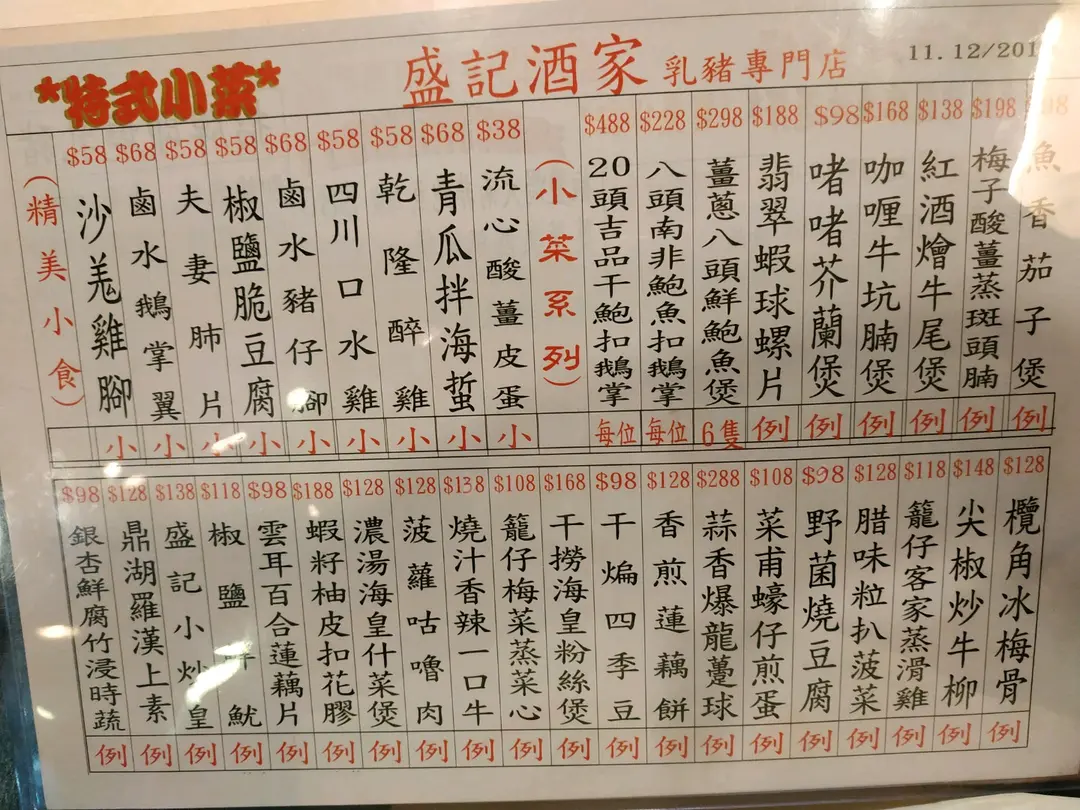 *特式小菜*
盛記酒家 乳豬專門店
11.12/201
魚香茄子煲
例
$198
梅子酸薑蒸斑頭腩
例
$138
紅酒燴牛尾煲
例
$168
咖喱牛坑腩煲
例
$98
啫啫芥蘭煲
例
$188
翡翠蝦球螺片
例
$298
薑蔥八頭鮮鮑魚煲
6隻
$228
八頭南非鮑魚扣鵝掌
每位
$488
20頭吉品干鮑扣鵝掌
每位
(小菜系列)
$38
流心酸薑皮蛋
小
$68
青瓜拌海蜇
小
$58
乾隆醉雞
小
$58
四川口水雞
小
$68
鹵水豬仔腳
小
$58
椒鹽脆豆腐
小
$58
夫妻肺片
小
$68
鹵水鵝掌翼
小
$58
沙羌雞腳
小
(精美小食)
$128
欖角冰梅骨
例
$148
尖椒炒牛柳
例
$118
籠仔客家蒸滑雞
例
$128
腊味粒扒菠菜
例
$98
野菌燒豆腐
例
$108
菜甫蠔仔煎蛋
例
$288
蒜香爆龍躉球
例
$128
香煎蓮藕餅
例
$98
干煸四季豆
例
$168
干撈海皇粉絲煲
例
$108
籠仔梅菜蒸菜心
例
$138
燒汁香辣一口牛
例
$128
菠蘿咕嚕肉
例
$128
濃湯海皇什菜煲
例
$188
蝦籽柚皮扣花膠
例
$98
雲耳百合蓮藕片
例
$118
椒鹽鮮魷
例
$138
盛記小炒皇
例
$128
鼎湖羅漢上素
例
$98
銀杏鮮腐竹浸時蔬
例